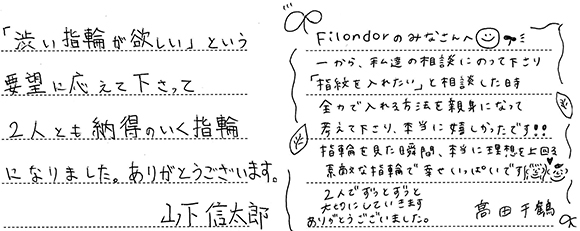 「渋い指輪が欲しい」という
要望に応えて下さって
2人とも納得のいく指輪
になりました。ありがとうございます。
山下信太郎
Filondorのみなさんへ
一から、私達の相談にのって下さり
「指紋を入れたい」と相談した時
全力で入れる方法を親身になって
考えて下さり、本当に嬉しかったです!!
指輪を見た瞬間、本当に理想を上回る
素敵な指輪で幸せいっぱいです
2人でずっとずっと
大切にしていきます
ありがとうございました。
髙田千鶴